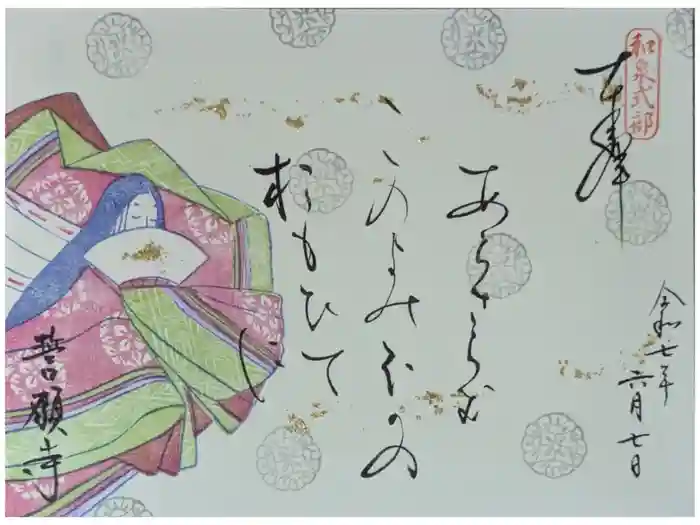 和泉式部
奉拝
令和七年
六月七日
あらざらむ
このよのほかの
おもひで
に
誓願寺